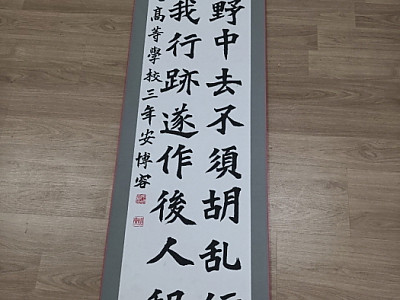 野中去不須胡乱行
我行跡遂作後人程
高等學校三年安博容